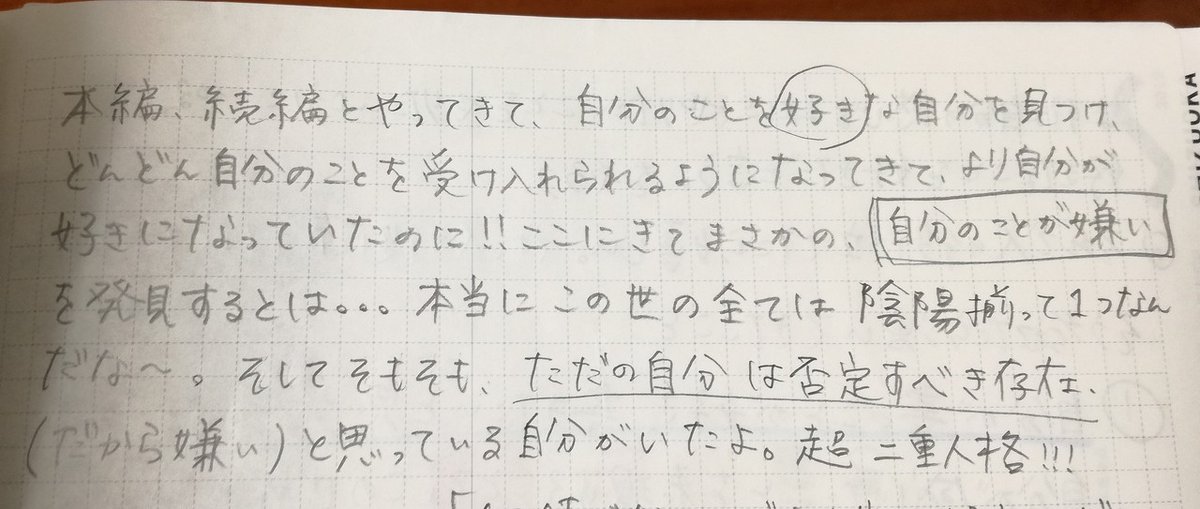 本編、続編とやってきて、自分のことを好きな自分を見つけ、
どんどん自分のことを受け入れられるようになってきて、より自分が
好きになっていたのに!!ここにきてまさかの、自分のことが嫌い
を発見するとは。。。本当にこの世の全ては陰陽揃って1つなん
だな〜。そしてそもそも、ただの自分は否定すべき存在、
(だから嫌い)と思っている自分がいたよ。超二重人格!!!